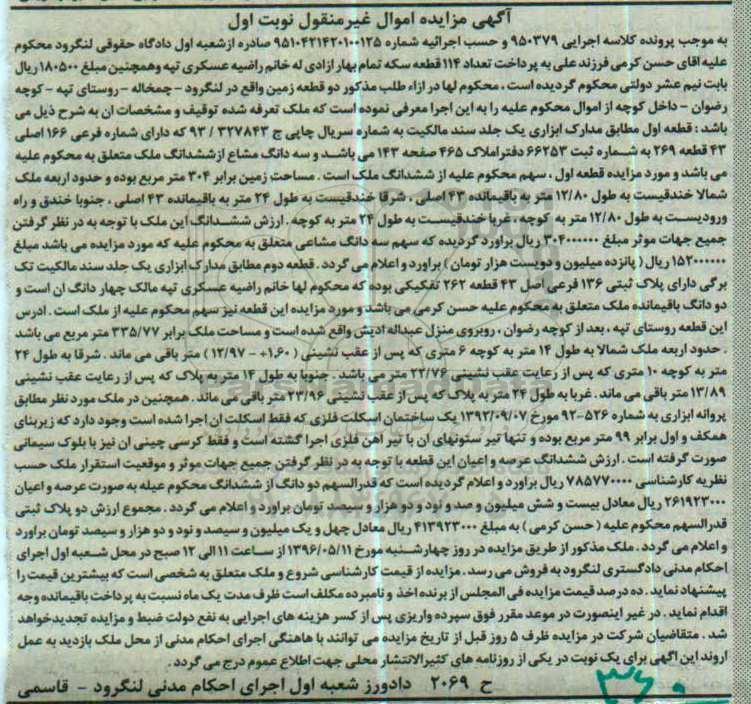 آگهی مزایده اموال غیرمنقول نوبت اول
به موجب پرونده کلاسه اجرایی ۹۵۰۳۷۹ و حسب اجرائیه شماره ۹۵۱۰۴۲۱۴۲۰۱۰۰۱۲۵ صادره ازشعبه اول دادگاه حقوقی لنگرود محکوم
علیه اقای حسن کرمی فرزند علی به پرداخت تعداد ۱۱۴ قطعه سکه تمام بهار ازادی له خانم راضیه عسکری تپه وهمچنین مبلغ ۱۸۰۵۰۰ ریال
بابت نیم عشر دولتی محکوم گردیده است . محکوم لها در ازاء طلب مذکور دو قطعه زمین واقع در لنگرود - چمخاله - روستای تپه - کوچه
رضوان - داخل کوچه از اموال محکوم علیه را به این اجرا معرفی نموده است که ملک تعرفه شده توقیف و مشخصات ان به شرح ذیل می
باشد : قطعه اول مطابق مدارک ابزاری یک جلد سند مالکیت به شماره سریال چاپی ج ۳۲۷۸۴۳ / ۹۳ که دارای شماره فرعی ۱۶۶ اصلی
۴۳ قطعه ۲۶۹ به شماره ثبت ۶۶۲۵۳ دفتراملاک ۴۶۵ صفحه ۱۴۳ می باشد و سه دانگ مشاع ازششدانگ ملک متعلق به محکوم علیه
می باشد و مورد مزایده قطعه اول ، سهم محکوم علیه از ششدانگ ملک است . مساحت زمین برابر ۳۰۴ متر مربع بوده و حدود اربعه ملک
شمالا خندقیست به طول ۱۲/۸۰ متر به باقیمانده ۴۳ اصلی ، شرقا خندقیست به طول ۲۴ متر به باقیمانده ۴۳ اصلی ، جنوبا خندق و راه
ورودیست به طول ۱۲/۸۰ متر به کوچه ، غربا خندقیست به طول ۲۴ متر به کوچه . ارزش ششدانگ این ملک با توجه به در نظر گرفتن
جمیع جهات موثر مبلغ ۳۰۴۰۰۰۰۰۰ ریال براورد گردیده که سهم سه دانگ مشاعی متعلق به محکوم علیه که مورد مزایده می باشد مبلغ
۱۵۲۰۰۰۰۰۰ ریال ( پانزده میلیون و دویست هزار تومان ) براورد و اعلام می گردد . قطعه دوم مطابق مدارک ابزاری یک جلد سند مالکیت تک
برگی دارای پلاک ثبتی ۱۳۶ فرعی اصل ۴۳ قطعه ۲۶۲ تفکیکی بوده که محکوم لها خانم راضیه عسکری تپه مالک چهار دانگ ان است و
دو دانگ باقیمانده ملک متعلق به محکوم علیه حسن کرمی می باشد و مورد مزایده این قطعه نیز سهم محکوم علیه از ملک است . ادرس
این قطعه روستای تپه ، بعد از کوچه رضوان ، روبروی منزل عبداله ادیش واقع شده است و مساحت ملک برابر ۳۳۵/۷۷ متر مربع می باشد
. حدود اربعه ملک شمالا به طول ۱۴ متر به کوچه ۶ متری که پس از عقب نشینی ( ۱.۶۰+ - ۱۲/۹۷ ) متر باقی می ماند . شرقا به طول ۲۴
متر به کوچه ۱۰ متری که پس از رعایت عقب نشینی ۲۲/۷۶ متر می باشد . جنوبا به طول ۱۴ متر به پلاک که پس از رعایت عقب نشینی
۱۳/۸۹ متر باقی می ماند . غربا به طول ۲۴ متر به پلاک که پس از عقب نشینی ۲۳/۹۶ متر باقی می ماند . همچنین در ملک مورد نظر مطابق
پروانه ابزاری به شماره ۵۲۶-۹۲ مورخ ۱۳۹۲/۰۹/۰۷ یک ساختمان اسکلت فلزی که فقط اسکلت ان اجرا شده است وجود دارد که زیربنای
همکف و اول برابر ۹۹ متر مربع بوده و تنها تیر ستونهای ان با تیر اهن فلزی اجرا گشته است و فقط کرسی چینی ان نیز با بلوک سیمانی
صورت گرفته است . ارزش ششدانگ عرصه و اعیان این قطعه با توجه به در نظر گرفتن جمیع جهات موثر و موقعیت استقرار ملک حسب
نظریه کارشناسی ۷۸۵۷۷۰۰۰۰ ریال براورد و اعلام گردیده است که قدرالسهم دو دانگ از ششدانگ محکوم عیله به صورت عرصه و اعیان
۲۶۱۹۲۳۰۰۰ ریال معادل بیست و شش میلیون و صد و نود و دو هزار و سیصد تومان براورد و اعلام می گردد . مجموع ارزش دو پلاک ثبتی
قدرالسهم محکوم علیه ( حسن کرمی ) به مبلغ ۴۱۳۹۲۳۰۰۰ ریال معادل چهل و یک میلیون و سیصد و نود و دو هزار و سیصد تومان براورد
و اعلام می گردد . ملک مذکور از طریق مزایده در روز چهارشنبه مورخ ۱۳۹۶/۰۵/۱۱ از ساعت ۱۱ الی ۱۲ صبح در محل شعبه اول اجرای
احکام مدنی دادگستری لنگرود به فروش می رسد . مزایده از قیمت کارشناسی شروع و ملک متعلق به شخصی است که بیشترین قیمت را
پیشنهاد نماید . ده درصد قیمت مزایده فی المجلس از برنده اخذ و نامبرده مکلف است ظرف مدت یک ماه نسبت به پرداخت باقیمانده وجه
اقدام نماید . در غیر اینصورت در موعد مقرر فوق سپرده واریزی پس از کسر هزینه های اجرایی به نفع دولت ضبط و مزایده تجدیدخواهد
شد . متقاضیان شرکت در مزایده ظرف ۵ روز قبل از تاریخ مزایده می توانند با هاهنگی اجرای احکام مدنی از محل ملک بازدید به عمل
اروند این اگهی برای یک نوبت در یکی از روزنامه های کثیرالانتشار محلی جهت اطلاع عموم درج می گردد .
ح ۲۰۶۹ دادورز شعبه اول اجرای احکام مدنی لنگرود - قاسمی